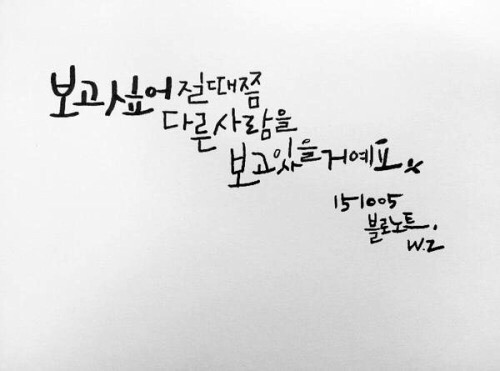 보고싶어질때쯤
다른사람을
보고있을거예요
151005
블로노트.
W.Z